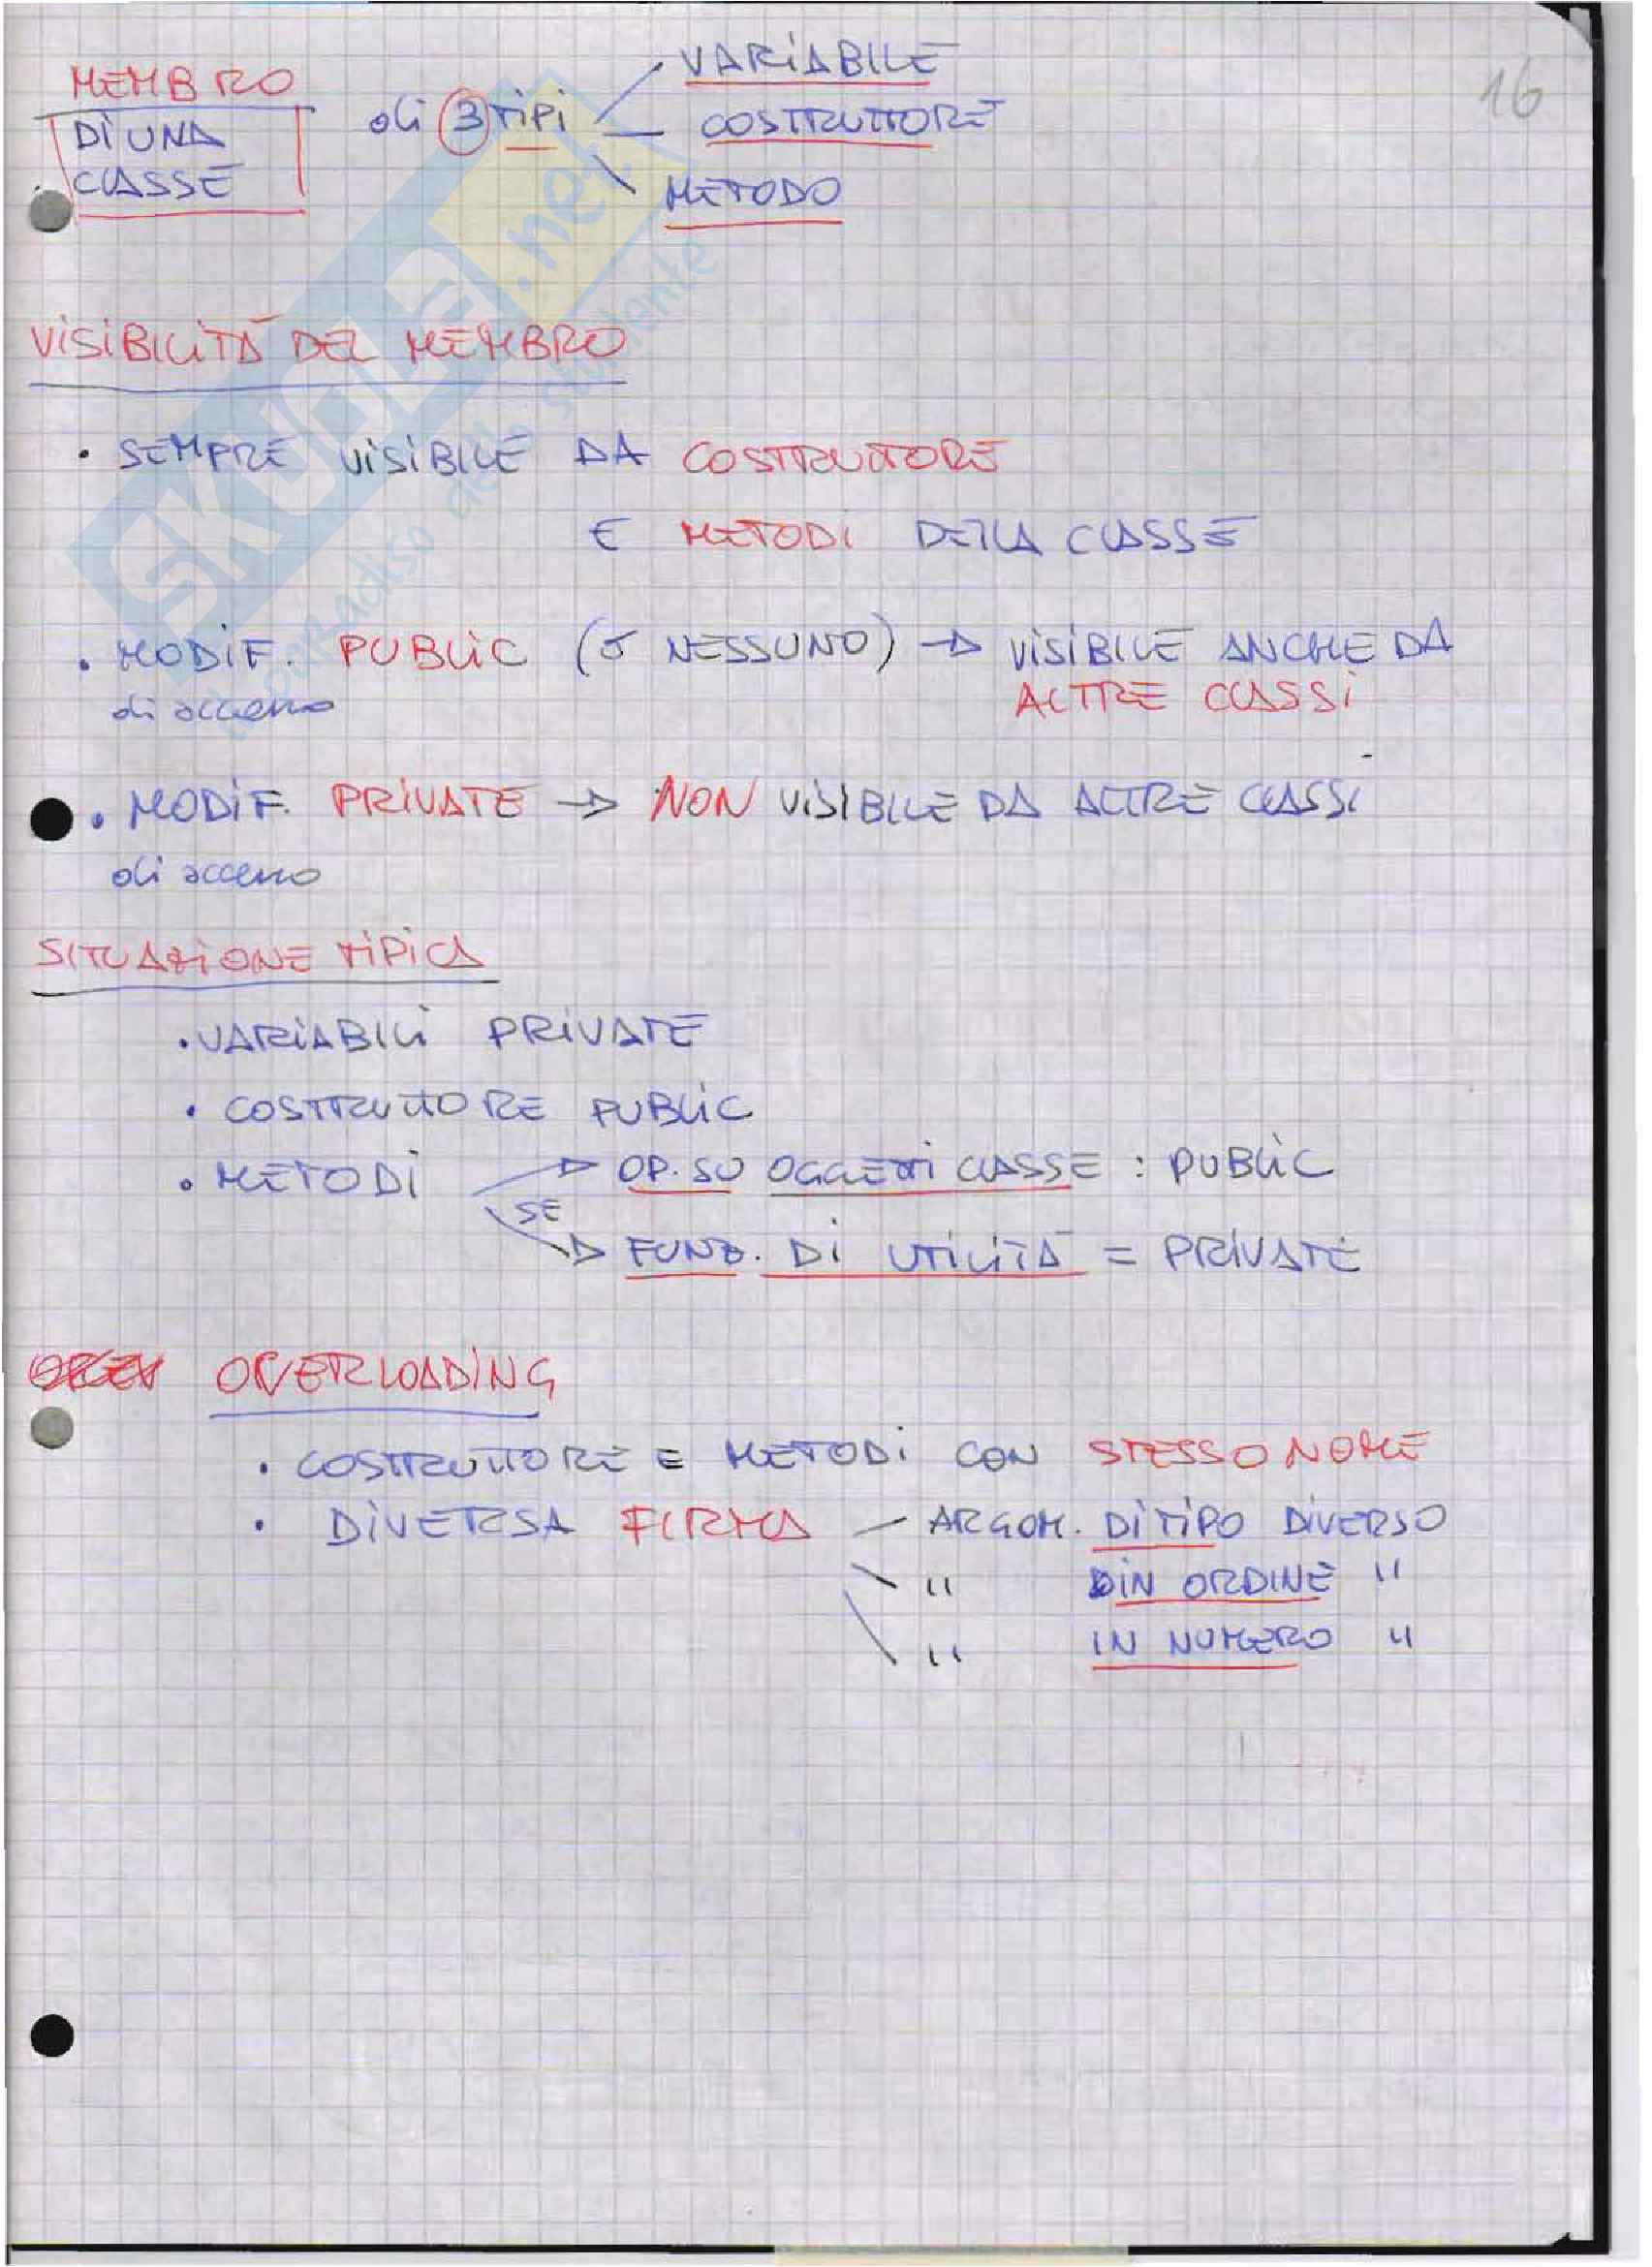 16
MEMBRO
DI UNA
CLASSE
di 3 TIPI
VARIABILE
COSTRUTTORE
METODO
VISIBILITÀ DEL MEMBRO
• SEMPRE VISIBILE DA COSTRUTTORE
E METODI DELLA CLASSE
• MODIF. PUBLIC (O NESSUNO) → VISIBILE ANCHE DA
di accesso ALTRE CLASSI
• MODIF. PRIVATE → NON VISIBILE DA ALTRE CLASSI
di accesso
SITUAZIONE TIPICA
• VARIABILI PRIVATE
• COSTRUTTORE PUBLIC
• METODI → OP. SU OGGETTI CLASSE : PUBLIC
SE
→ FUNZ. DI UTILITÀ = PRIVATE
OVERLOADING
• COSTRUTTORE E METODI CON STESSO NOME
• DIVERSA FIRMA – ARGOM. DI TIPO DIVERSO
" IN ORDINE "
" IN NUMERO "
SKUOLA.net
il paradiso dello studente